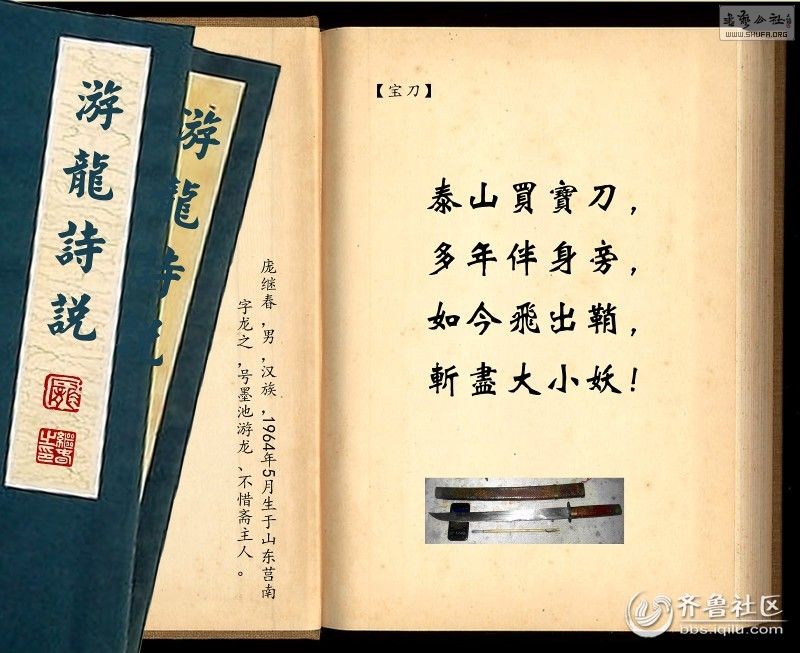 游龍詩説
游龍詩
【宝刀】
泰山買寶刀，
多年伴身旁，
如今飛出鞘，
斬盡大小妖！
庞继春，男，汉族，1964年5月生于山东莒南
字龙之，号墨池游龙、不惜斋主人。
WWW.SHUFA.ORG
齐鲁社区
bbs.iqilu.com